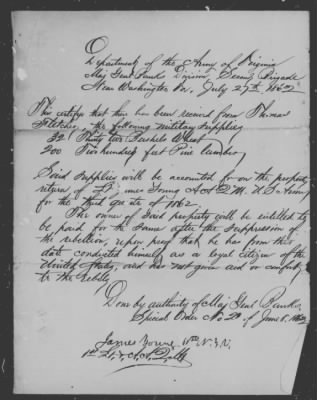 Department of the Army of Virginia
Maj Genl Banks Division Second Brigade
Near Washington Va, July 27th 1862
This certify that there has been received from Thomas
Fletcher, the following military supplies
32 Thirty two Bushels Wheat
200 Two hundred feet Pine lumber
Said Supplies will be accounted for on the property
return of Lt James Young A A Q M. U S Army
for the third quarter of 1862
The owner of said property will be entitled to
be paid for the same after the suppression of
the rebellion, upon proof that he has from this
date conducted himself as a loyal citizen of the
United States, and has not given aid or comfort
to the rebels
Done by authority of Maj Genl Banks
Special Order No 20 of June 8, 1862
James Young N.Y.V.
1st Lt & A.A.Q.M